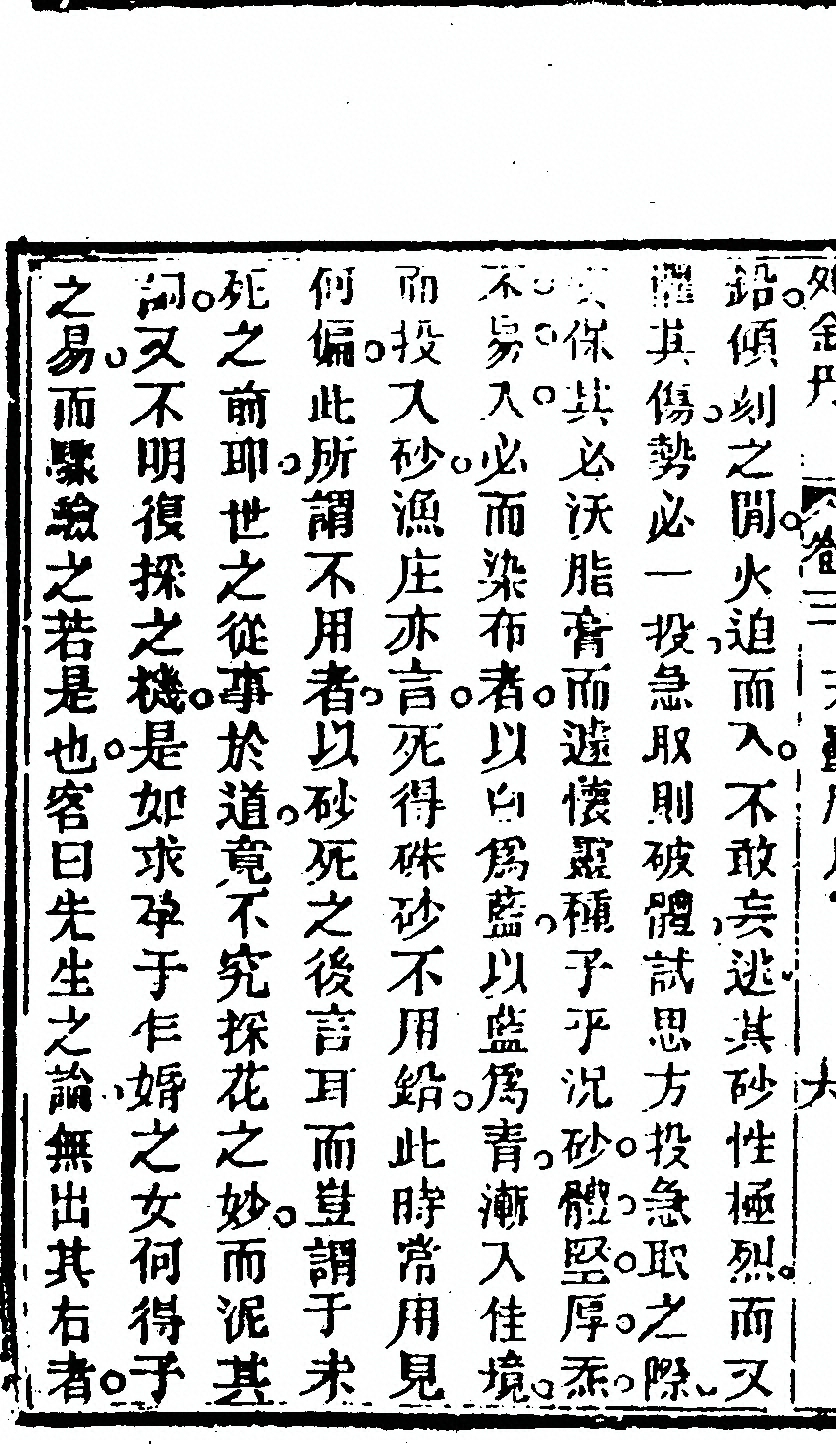 鉛傾刻之間火迫而入不敢妄逃其砂性極烈而又
罹其傷勢必一投急取則破體試思方投急取之際
保其必沃脂膏而遽懷靈種子乎况砂體堅厚炁
不易入必而染布者以白爲藍以藍爲青漸入佳境
而投入砂漁庄亦言死得硃砂不用鉛此時常用見
何偏此所謂不用者以砂死之後言耳而豈謂于未
死之前耶世之從事於道竟不究探花之妙而泥其
詞又不明復採之機是如求孕于乍婚之女何得子
之易而驟驗之若是也客曰先生之論無出其右者